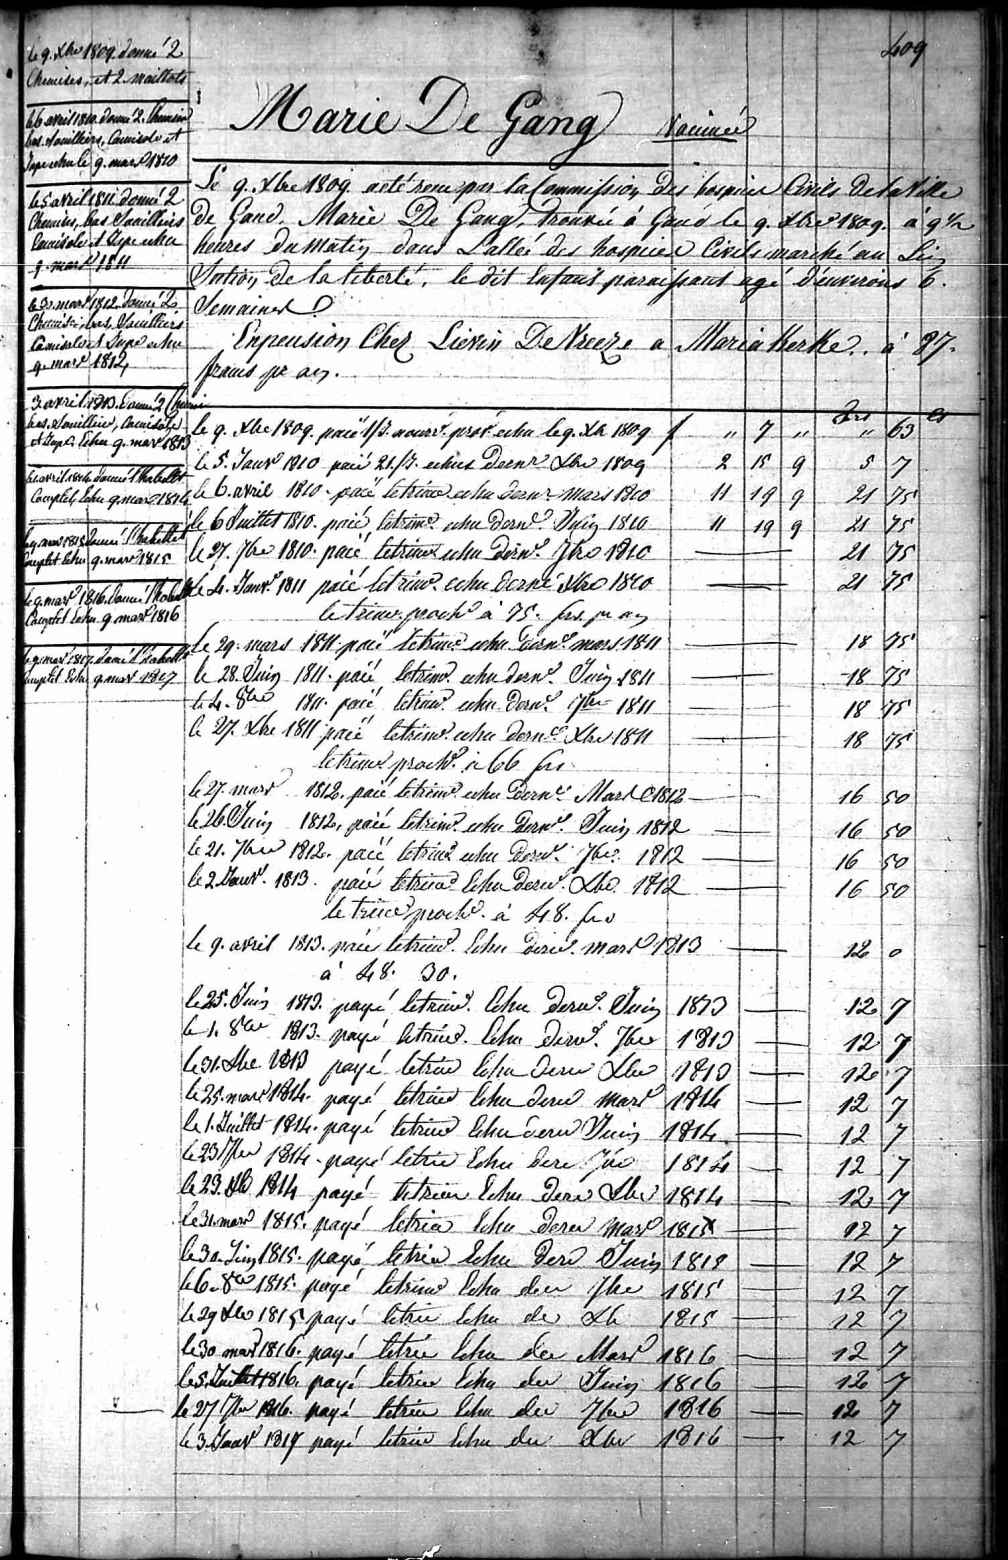 409
Marie De Gang Vaccinée
le 9. Xbre 1809. donné 2
Chemises, et 2 maillots
le 6 avril 1810. donné 2. Chemises
bas. Souilliers, Camisole et
Jupe echu le 9. mars 1810
le 5 avril 1811 donné 2
Chemises, bas Souilliers
Camisole et Jupe echu
9. mars 1811
le 3. mars 1812. donné 2
Chemises, bas, Souilliers
Camisole et Jupe echu
9. mars 1812,
3. avril 1813. donné 2 Chemis
bas. Souilliers, Camisole
et Jupe. Echu 9. mars 1813
avril 1814 donné l'habillt
Complet, Echu 9 mars 1814
mars 1815 donné l'habillt
Complet Echu 9. mars 1815
le 9. mars 1816. donné l'habillt
Complet Echu 9 mars 1816
le 9. mars 1817. donné l'habillt
Complet Echu 9 mars 1817
Le 9. Xbre 1809. acté reçu par la Commission des hospices Civils de la Ville
de Gand. Marie De Gang, trouvée à Gand le 9. Xbre 1809. à 9 1/2
heures du matin dans L'allée des hospices Civils marché au
de la liberté, le dit Enfant paraissant agé d'environs 6.
Semaines
Enpension Chez Lievin De Vreeze a Mariakerke.. à 87.
francs pr an.
frs cs
le 9. Xbre 1809. paié 1/3. nourr. prov. echu le 9. Xb 1809 f " 7 " " 63
le 5. Janvr 1810 paié 21/3. echus dernr Xbre 1809 2 15 9 5 7
le 6. avril 1810. paié letrime echu dernr mars 1810 11 19 9 21 75
le 6 Juillet 1810. paié letrime. echu dernr. Juin 1810 11 19 9 21 75
le 27. 7bre 1810. paié letrime echu dernr. 7bre 1810 21 75
le 4. Janvr. 1811 paié letrime. echu dernr Xbre 1810 21 75
letrime. proch. à 75. frs. pr an
le 29. mars 1811. paié letrime echu dernr. mars 1811 18 75
le 28. Juin 1811. paié letrime. echu dernr. Juin 1811 18 75
le 4. 8bre 1811. paié letrime. echu dernr. 7bre 1811 18 75
le 27. Xbre 1811 paié letrime. echu dernr. Xbre 1811 18 75
letrime proch. à 66 frs
le 27. mars 1812. paié letrime echu dernr. Mars 1812 16 50
le 26. Juin 1812. paié letrime. echu dernr. Juin 1812 16 50
le 21. 7bre 1812. paié letrime echu dernr. 7bre. 1812 16 50
le 2 Janvr. 1813. paié letrime Echu dernr. Xbre. 1812 16 50
letrime proch. à 48. frs
le 9. avril 1813. paié letrime. Echu dernr. mars 1813 12 0
à 48. 30.
le 25. Juin 1813. payé letrime. Echu dernr. Juin 1813 12 7
le 1. 8bre 1813. payé letrime. Echu dernr. 7bre 1813 12 7
le 31. Xbre 1813 payé letrim Echu dern Xbre 1813 12 7
le 25. mars 1814. payé letrim Echu dern mars 1814 12 7
le 1. Juillet 1814. payé letrim Echu dern Juin 1814. 12 7
le 23 7bre 1814. payé letrim Echu dern 7bre 1814 12 7
le 23. Xb 1814 payé letrim Echu dern Xbre 1814 12 7
le 31. mars 1815. payé letrim Echu dern mars 1815 12 7
le 30. Juin 1815. payé letrim Echu dern Juin 1815 12 7
le 6. 8bre 1815. payé letrim Echu der 7bre 1815 12 7
le 29 Xbre 1815 payé letrim Echu de Xb 1815 12 7
le 30 mars 1816. payé letrim Echu der Mars 1816 12 7
le 5. Juillet 1816. payé letrim Echu der Juin 1816 12 7
le 27 7bre 1816. payé letrim Echu der 7bre 1816 12 7
le 3. Janvr 1817 payé letrim Echu der Xbre 1816 12 7